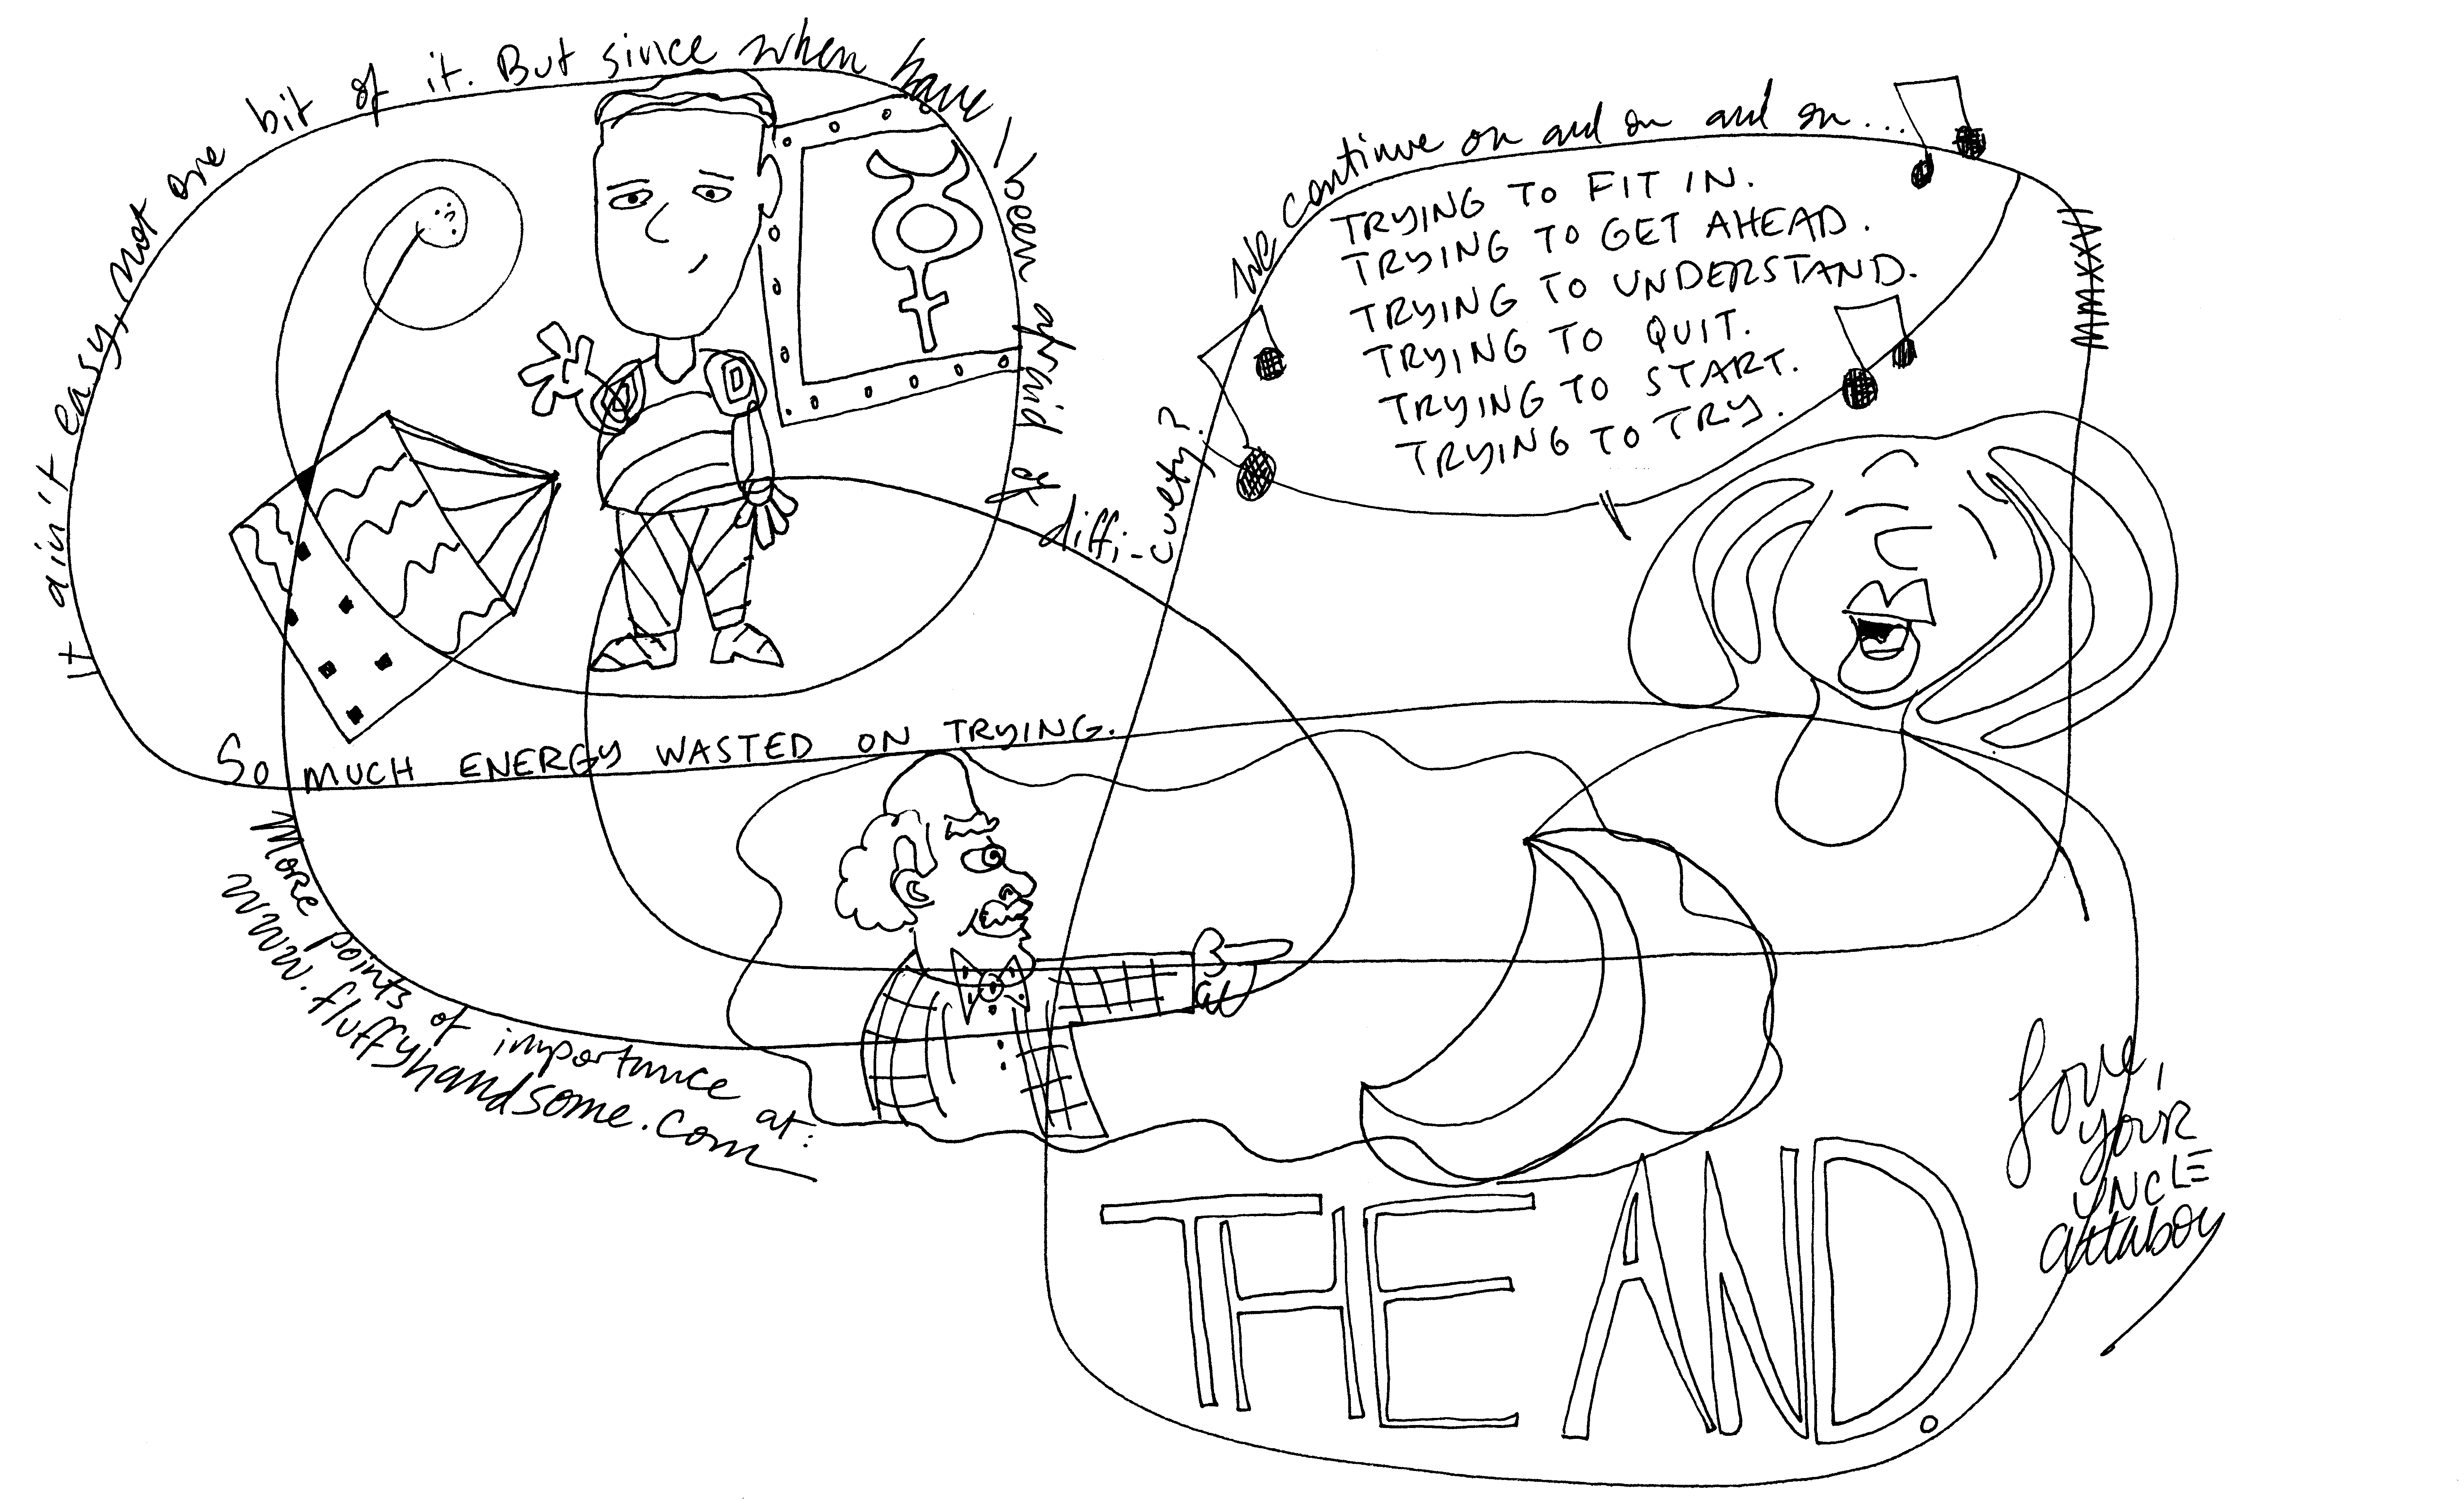 It ain't easy, not one bit of it. But since when have I been afraid of diffi-culty?
We continue on and on and on...
TRYING TO FIT IN.
TRYING TO GET AHEAD.
TRYING TO UNDERSTAND.
TRYING TO QUIT.
TRYING TO START.
TRYING TO TRY.
So MUCH ENERGY WASTED ON TRYING.
More points of importance at:
www.fluffyhandsome.com
THE AND.
Love,
your
UNCLE
attaboy